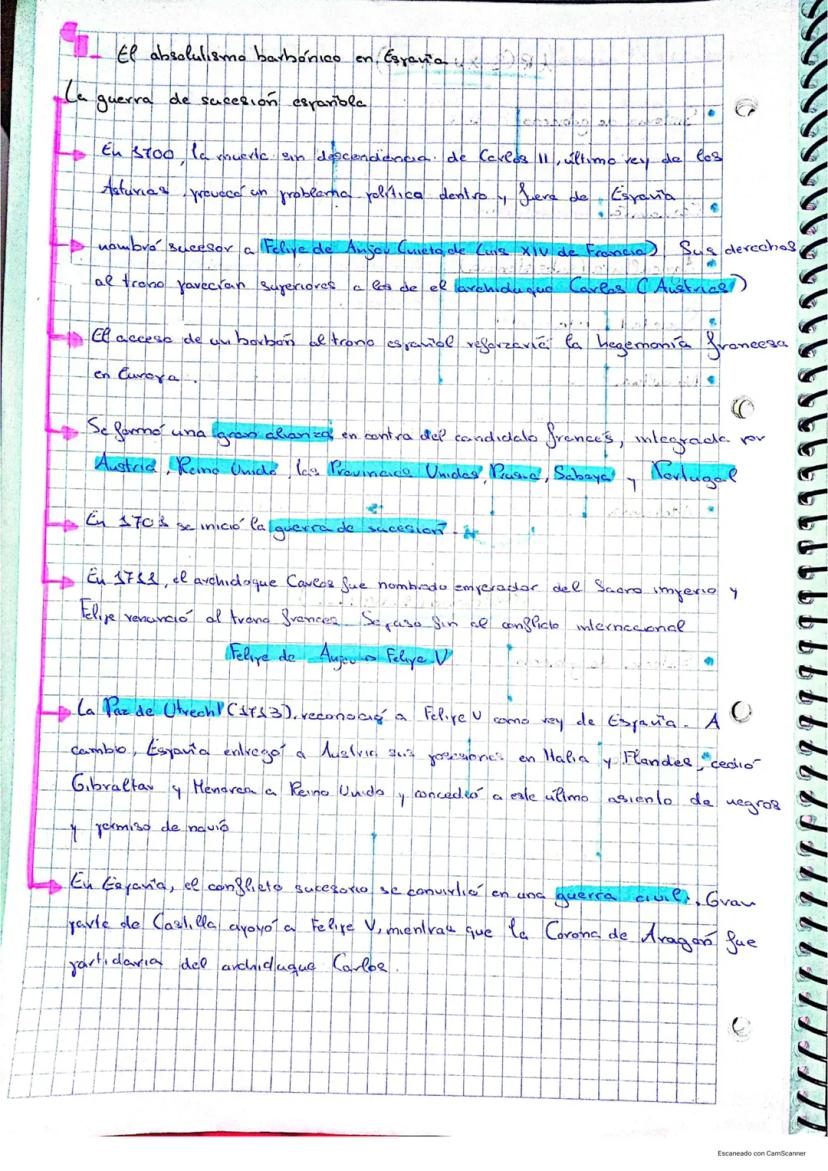 1. El absolutismo borbónico en España
La guerra de sucesión española
En 1700, la muerte sin descendencia de Carlos II, último rey de los
Asturias, provocó un problema política dentro y fuera de España
nombró sucesor a Felipe de Anjou (nieto de Luis XIV de Francia) Sus derechos
al trono parecían superiores a los de el archiduque Carlos (Austrias)
El acceso de un borbón al trono español reforzaría la hegemonía francesa
en Europa.
Se formó una gran alianza en contra del candidato francés, integrada por
Austria, Reino Unido, las Provincias Unidas, Prusia, Saboya y Portugal
En 1701 se inició la guerra de sucesión.
En 1711, el archidoque Carlos fue nombrado emperador del Sacro imperio y
Felipe renunció al trono francés. Se puso fin al conflicto internacional
Felipe de Anjou → Felipe V
La Paz de Utrech (1713), reconoció a Felipe V como rey de España. A
cambio, España entregó a Austria sus posesiones en Italia y Flandes, cedió
Gibraltar y Menorca a Reino Unido y concedió a este último asiento de negros
y permiso de navió
En España, el conflicto sucesorio se convirtió en una guerra civil. Gran
parte de Castilla apoyó a Felipe V, mientras que la Corona de Aragón fue
partidaria del archiduque Carlos.
Escaneado con CamScanner